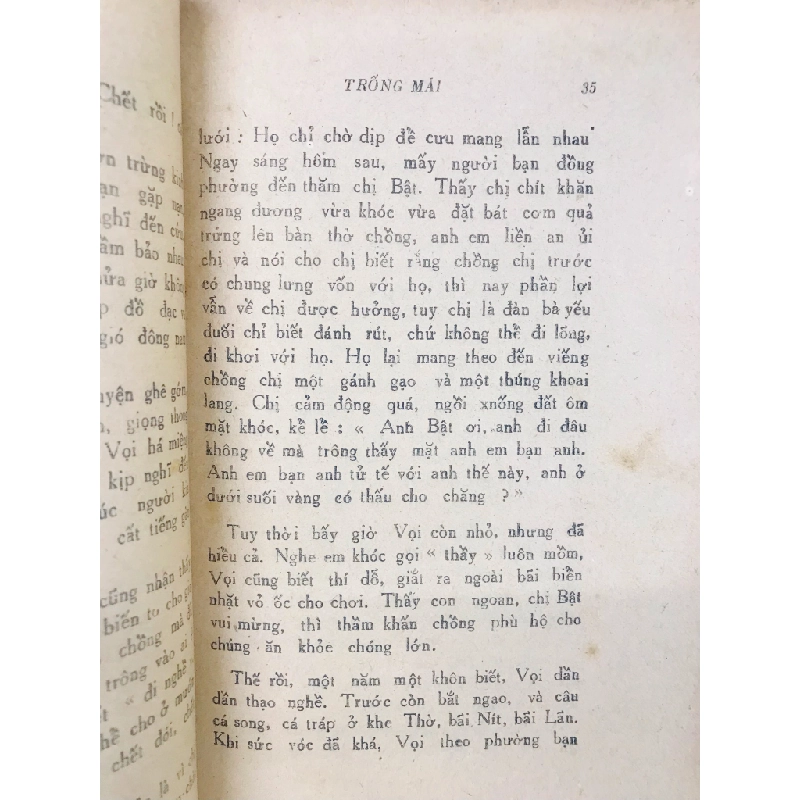 Chết rồi !
trừng
gặp
nghĩ đến
bảo
giờ không
đồ đạc
gió đông
ghê gớm
giọng
Vọi há
kịp nghĩ
người
cất tiếng
cũng nhận
biển to cho
chồng mà
trông vào
« đi nghề
cho ở
chết đói.
là vì
TRỐNG MÁI 35
lưới : Họ chỉ chờ dịp để cưu mang lẫn nhau
Ngay sáng hôm sau, mấy người bạn đồng
phường đến thăm chị Bật. Thấy chị chít khăn
ngang đương vừa khóc vừa đặt bát cơm quả
trứng lên bàn thờ chồng, anh em liền an ủi
chị và nói cho chị biết rằng chồng chị trước
có chung lưng vốn với họ, thì nay phần lợi
vẫn về chị được hưởng, tuy chị là đàn bà yếu
đuối chỉ biết đánh rút, chứ không thể đi lõng,
đi khơi với họ. Họ lại mang theo đến viếng
chồng chị một gánh gạo và một thúng khoai
lang. Chị cảm động quá, ngồi xnống đất ôm
mặt khóc, kể lể : « Anh Bật ơi, anh đi đâu
không về mà trông thấy mặt anh em bạn anh.
Anh em bạn anh tử tế với anh thế này, anh ở
dưới suối vàng có thấu cho chăng ? »
Tuy thời bấy giờ Vọi còn nhỏ, nhưng đã
hiểu cả. Nghe em khóc gọi « thầy » luôn mồm,
Vọi cũng biết thí dỗ, giắt ra ngoài bãi biển
nhặt vỏ ốc cho chơi. Thấy con ngoan, chị Bật
vui mừng, thì thầm khấn chồng phù hộ cho
chúng ăn khỏe chóng lớn.
Thế rồi, một năm một khôn biết, Vọi dần
dần thạo nghề. Trước còn bắt ngao, và câu
cá song, cá tráp ở khe Thờ, bãi Nít, bãi Lăn.
Khi sức vóc đã khá, Vọi theo phường bạn